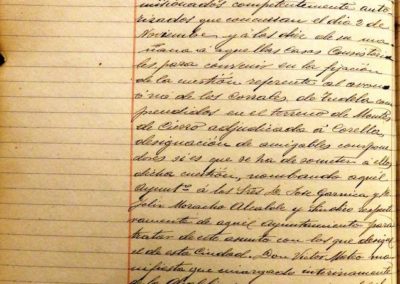 misionados competentemente auto-
rizados que concurran el dia 2 de
Noviembre y á las diez de su ma-
ñana á aquellas Casas Consistoria-
les para convenir en la fijacion
de la cuestion referente al
de los corrales de Tudela com-
prendidos en el terreno de Montes
de Cierzo adjudicado á Corella
designacion de amigables compone-
dores si es que se ha de someter á ellos
dicha cuestion, nombrando aquel
Ayuntº á los Sres. Dn. José Garnica y Dn.
Felix Moracho Alcalde y Sindico respecti-
vamente de aquel Ayuntamiento para
tratar de este asunto con los que designe
el de esta Ciudad. Don Victor Mateo ma-
nifiesta que encargado interinamente